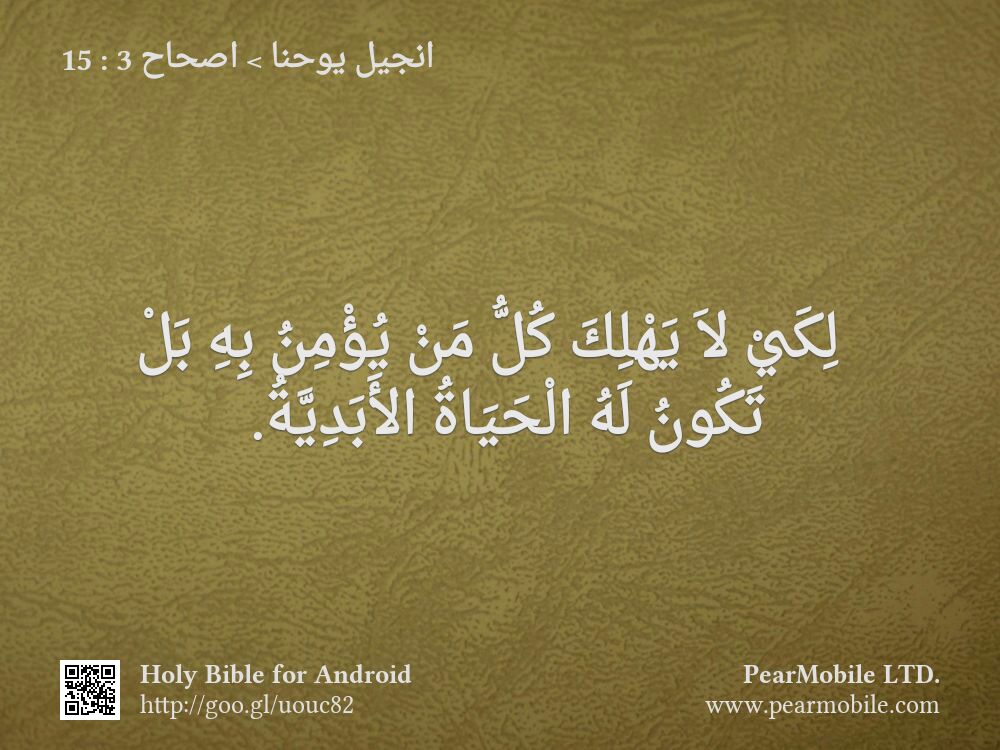 انجيل يوحنا > اصحاح 3 : 15
لِكَيْ لاَ يَهْلِكَ كُلُّ مَنْ يُؤْمِنُ بِهِ بَلْ
تَكُونُ لَهُ الْحَيَاةُ الأَبَدِيَّةُ.
Holy Bible for Android
http://goo.gl/uouc82
PearMobile LTD.
www.pearmobile.com